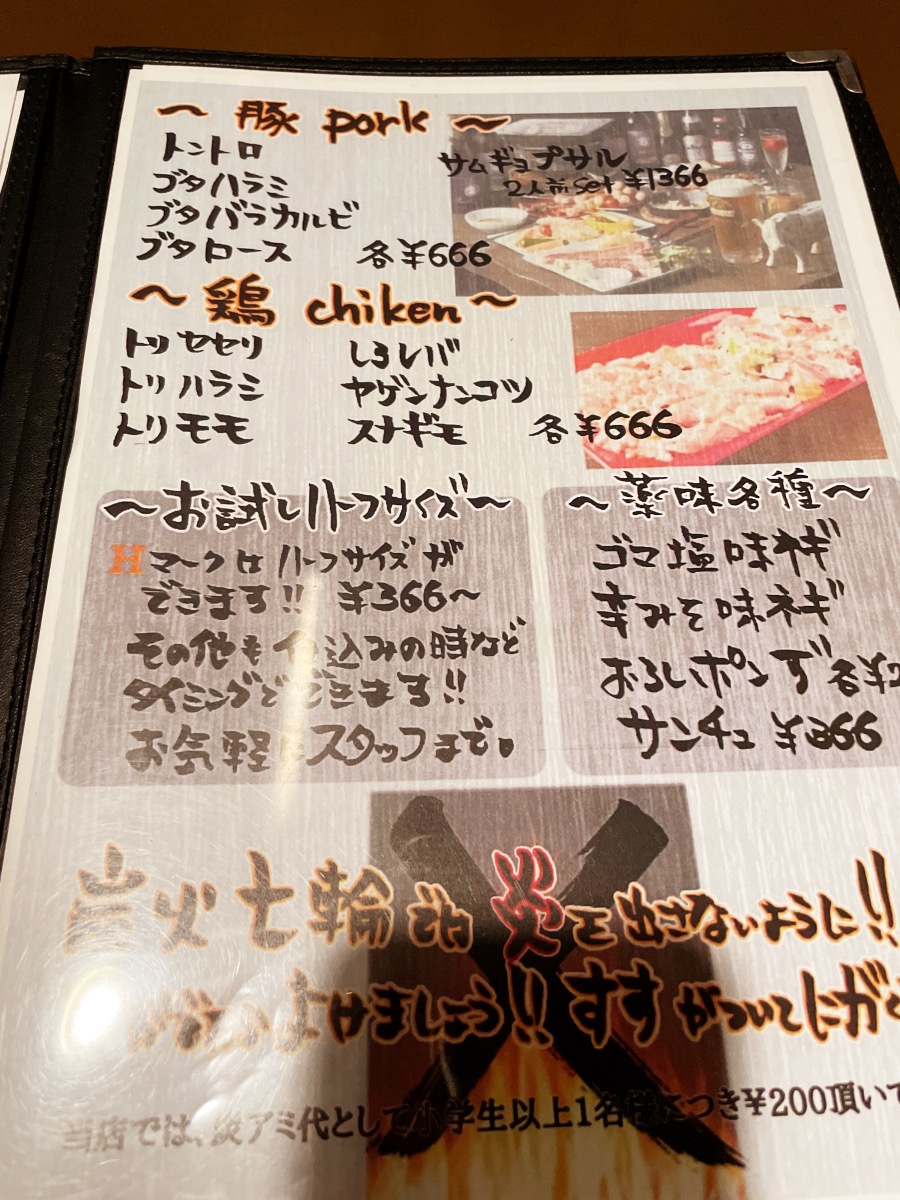 ～豚 pork～
トントロ
ブタハラミ
ブタバラカルビ
ブタロース 各¥666
サムギョプサル
2人前set ¥1366
～鶏 chiken～
トリセセリ しろレバ
トリハラミ ヤゲンナンコツ
トリモモ スナギモ 各¥666
～お試しハーフサイズ～
Hマークはハーフサイズが
できます!! ¥366～
その他も仕込みの時など
タイミングでできます!!
お気軽にスタッフまで。
～薬味各種～
ゴマ塩味ネギ
辛みそ味ネギ
おろしポンズ 各¥
サンチュ ¥366
炭火七輪では炎を出さないように!!
よけましょう!! すすがついてにが
当店では、炭アミ代として小学生以上1名様につき¥200頂いて